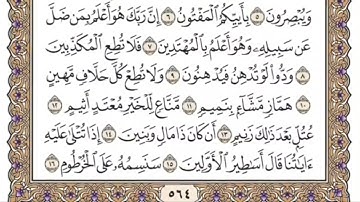 وَيُبْصِرُونَ ٥ بِأَييِّكُمُ ٱلْمَفْتُونُ ٦ إِنَّ رَبَّكَ هُوَ أَعْلَمُ بِمَن ضَلَّ
عَن سَبِيلِهِۦ وَهُوَ أَعْلَمُ بِٱلْمُهْتَدِينَ ٧ فَلَا تُطِعِ ٱلْمُكَذِّبِينَ
٨ وَدُّوا۟ لَوْ تُدْهِنُ فَيُدْهِنُونَ ٩ وَلَا تُطِعْ كُلَّ حَلَّافٍ مَّهِينٍ
١٠ هَمَّازٍ مَّشَّآءٍۭ بِنَمِيمٍ ١١ مَّنَّاعٍ لِّلْخَيْرِ مُعْتَدٍ أَثِيمٍ ١٢
عُتُلٍّۭ بَعْدَ ذَٰلِكَ زَنِيمٍ ١٣ أَن كَانَ ذَا مَالٍ وَبَنِينَ ١٤ إِذَا تُتْلَىٰ عَلَيْهِ
ءَايَٰتُنَا قَالَ أَسَٰطِيرُ ٱلْأَوَّلِينَ ١٥ سَنَسِمُهُۥ عَلَى ٱلْخُرْطُومِ ١٦
٥٦٤